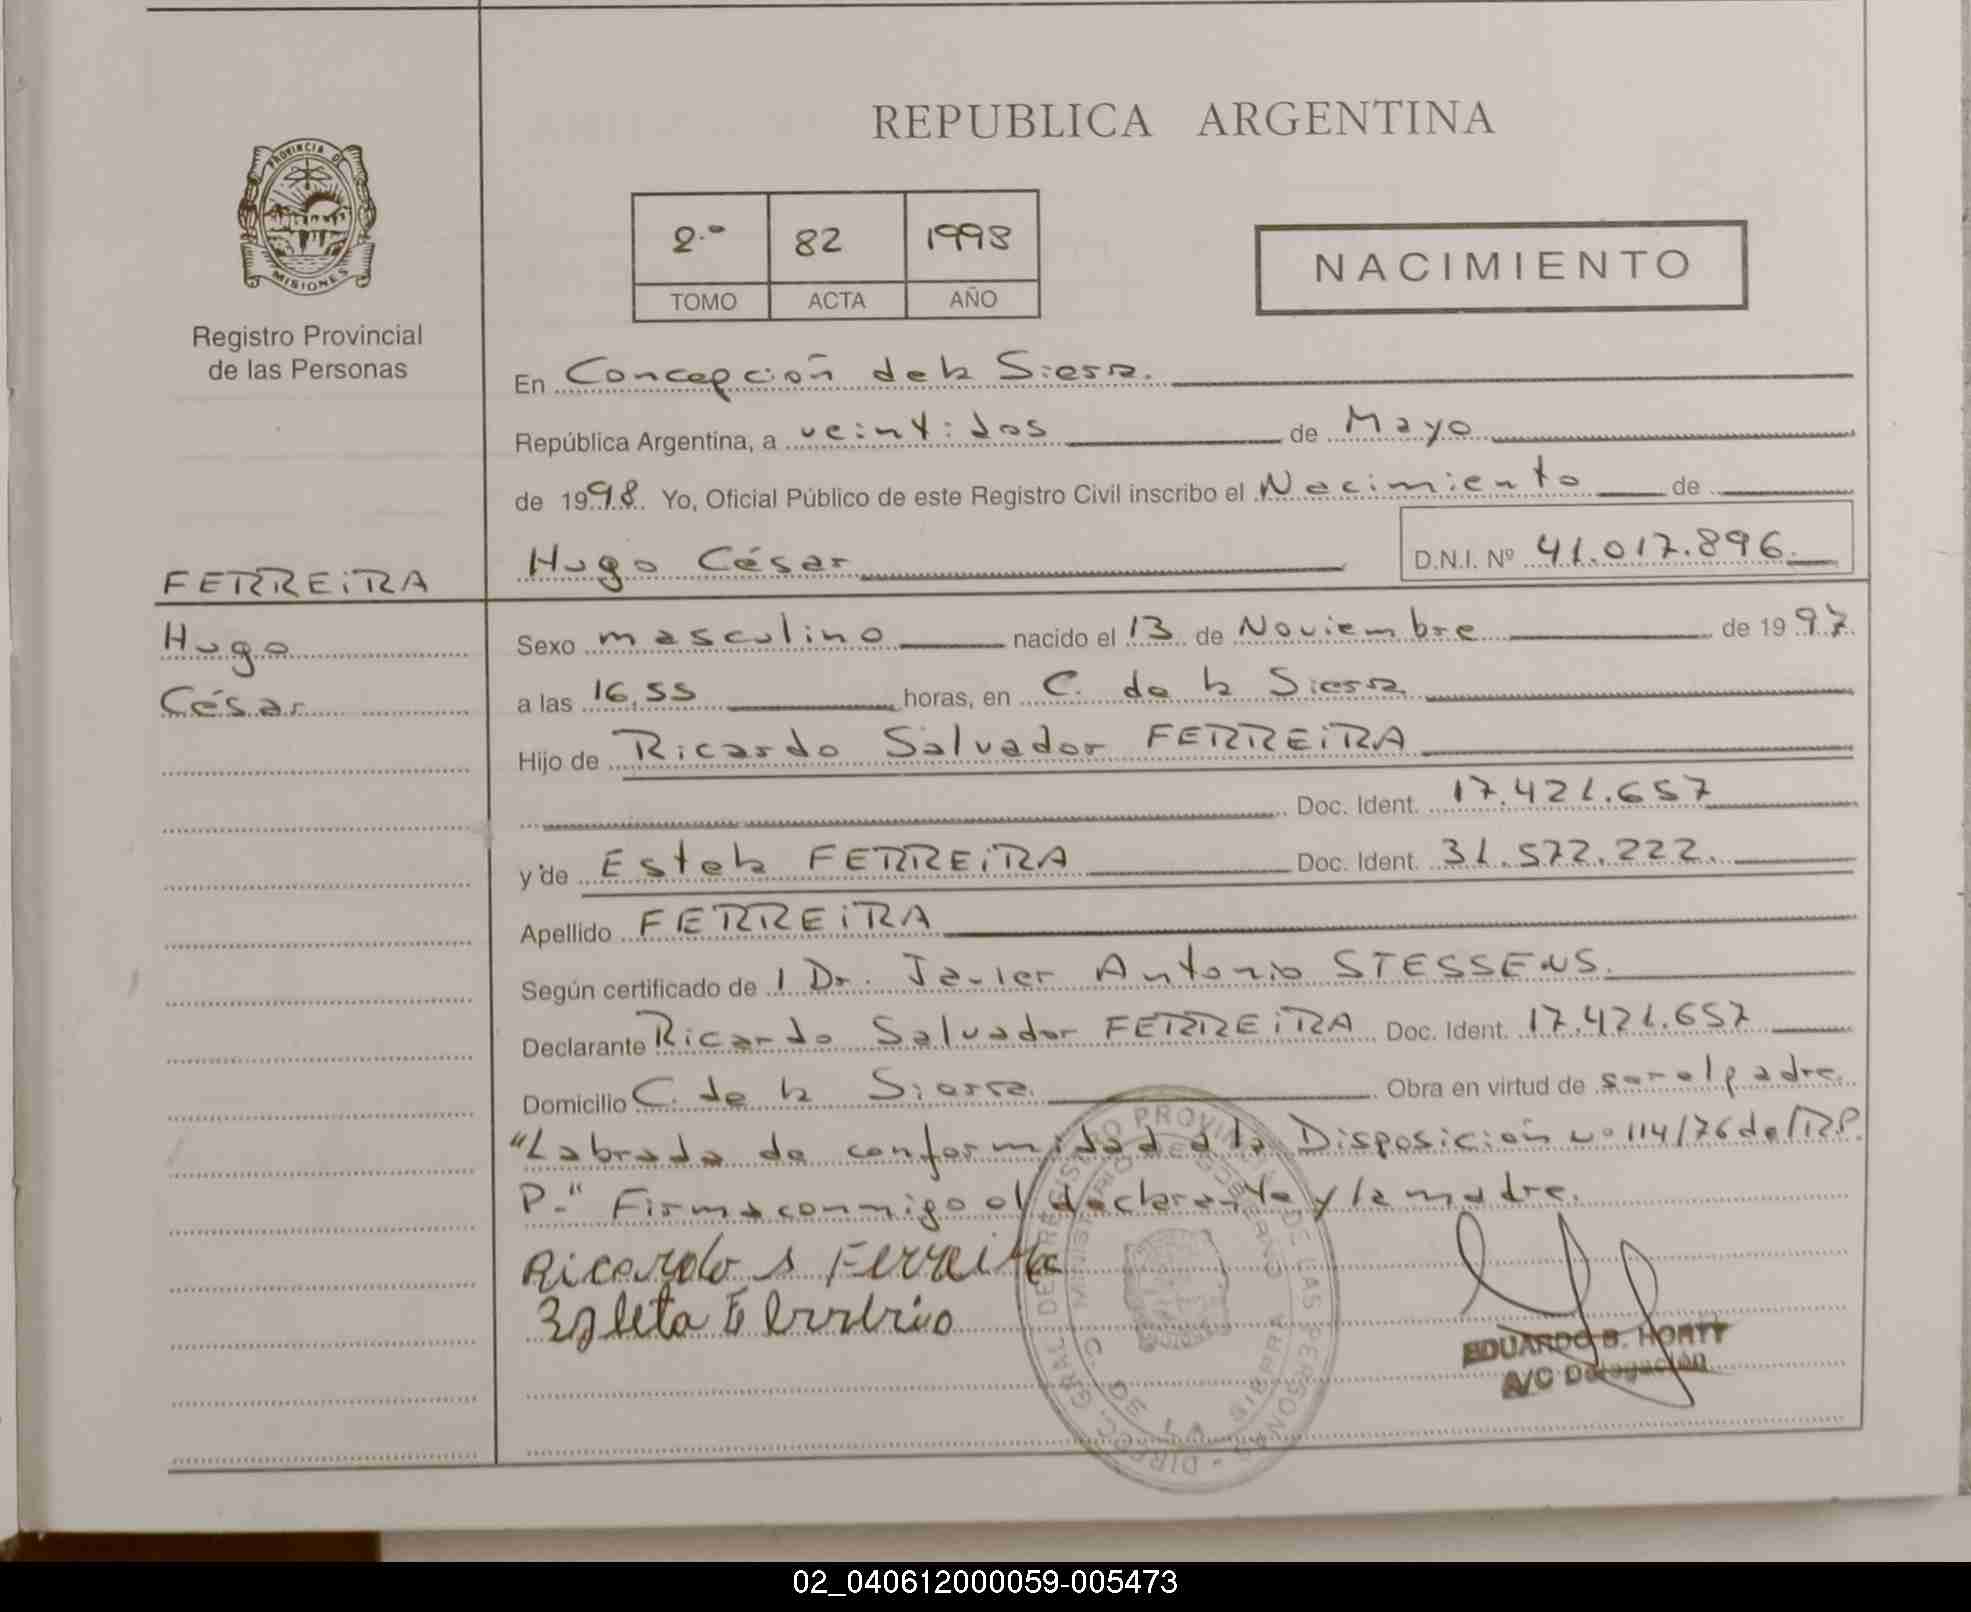 REPUBLICA ARGENTINA
PROVINCIA DE
MISIONES
Registro Provincial
de las Personas
2.º 82 1998
TOMO ACTA AÑO
NACIMIENTO
En Concepción de la Sierra.
República Argentina, a veintidos de Mayo
de 1998. Yo, Oficial Público de este Registro Civil inscribo el Nacimiento de
Hugo César D.N.I. Nº 41.017.896.
FERREIRA
Hugo
César
Sexo masculino nacido el 13 de Noviembre de 1997
a las 16,55 horas, en C. de la Sierra
Hijo de Ricardo Salvador FERREIRA
Doc. Ident. 17.421.657
y de Estela FERREIRA Doc. Ident. 31.572.222.
Apellido FERREIRA
Según certificado de l Dr. Javier Antonio STESSENS.
Declarante Ricardo Salvador FERREIRA Doc. Ident. 17.421.657
Domicilio C. de la Sierra. Obra en virtud de ser el padre.
"Labrada de conformidad a la Disposición nº 114/76 del R.P.
P." Firma conmigo el declarante y la madre.
Ricardo S Ferreira
EDUARDO B.
A/C Delegación
DIREC. GRAL. DE REGISTRO PROVINCIAL DE LAS PERSONAS
MINISTERIO DE GOBIERNO
C. DE LA SIERRA
02_040612000059-005473